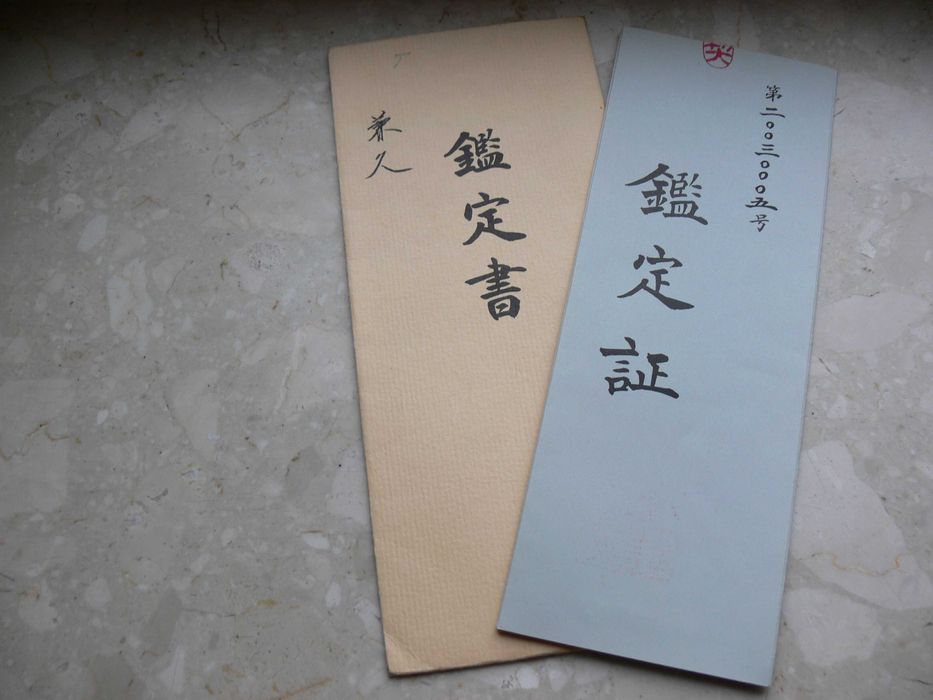 兼久
鑑定書
第二〇〇三〇〇〇五号
鑑定証